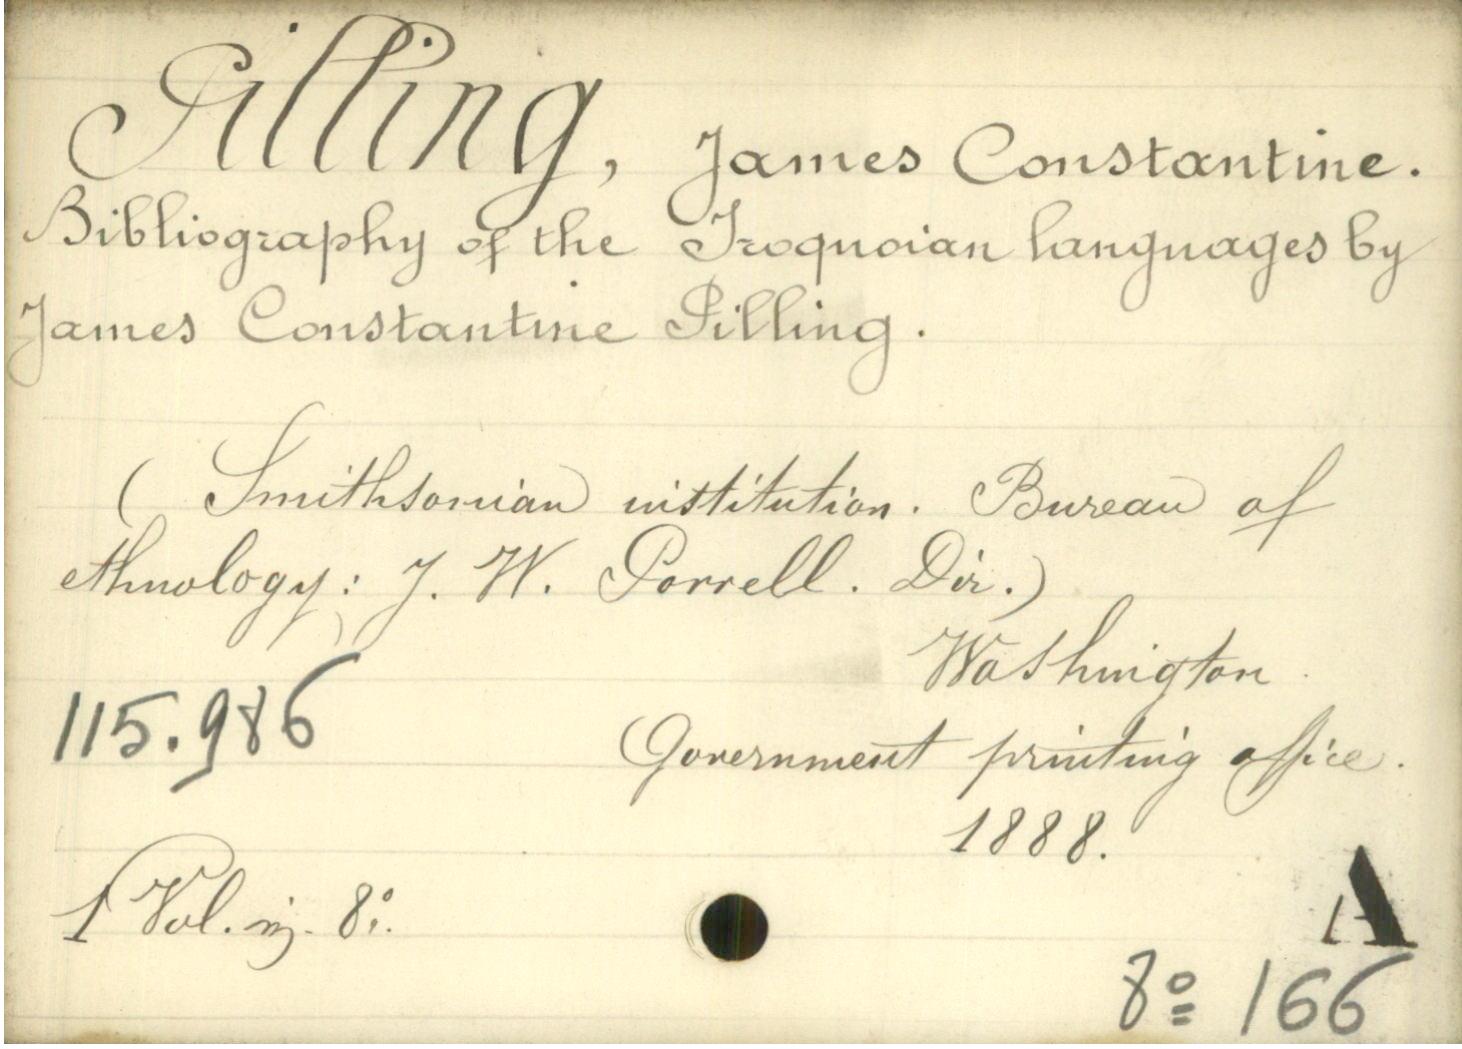 Pilling, James Constantine.
Bibliography of the Iroquoian languages by
James Constantine Pilling.
( Smithsonian institution. Bureau of
ethnology: J. W. Powell. Dir.)
Washington.
115.986
Government printing office.
1888.
1 Vol. in 8º.
A
8º 166